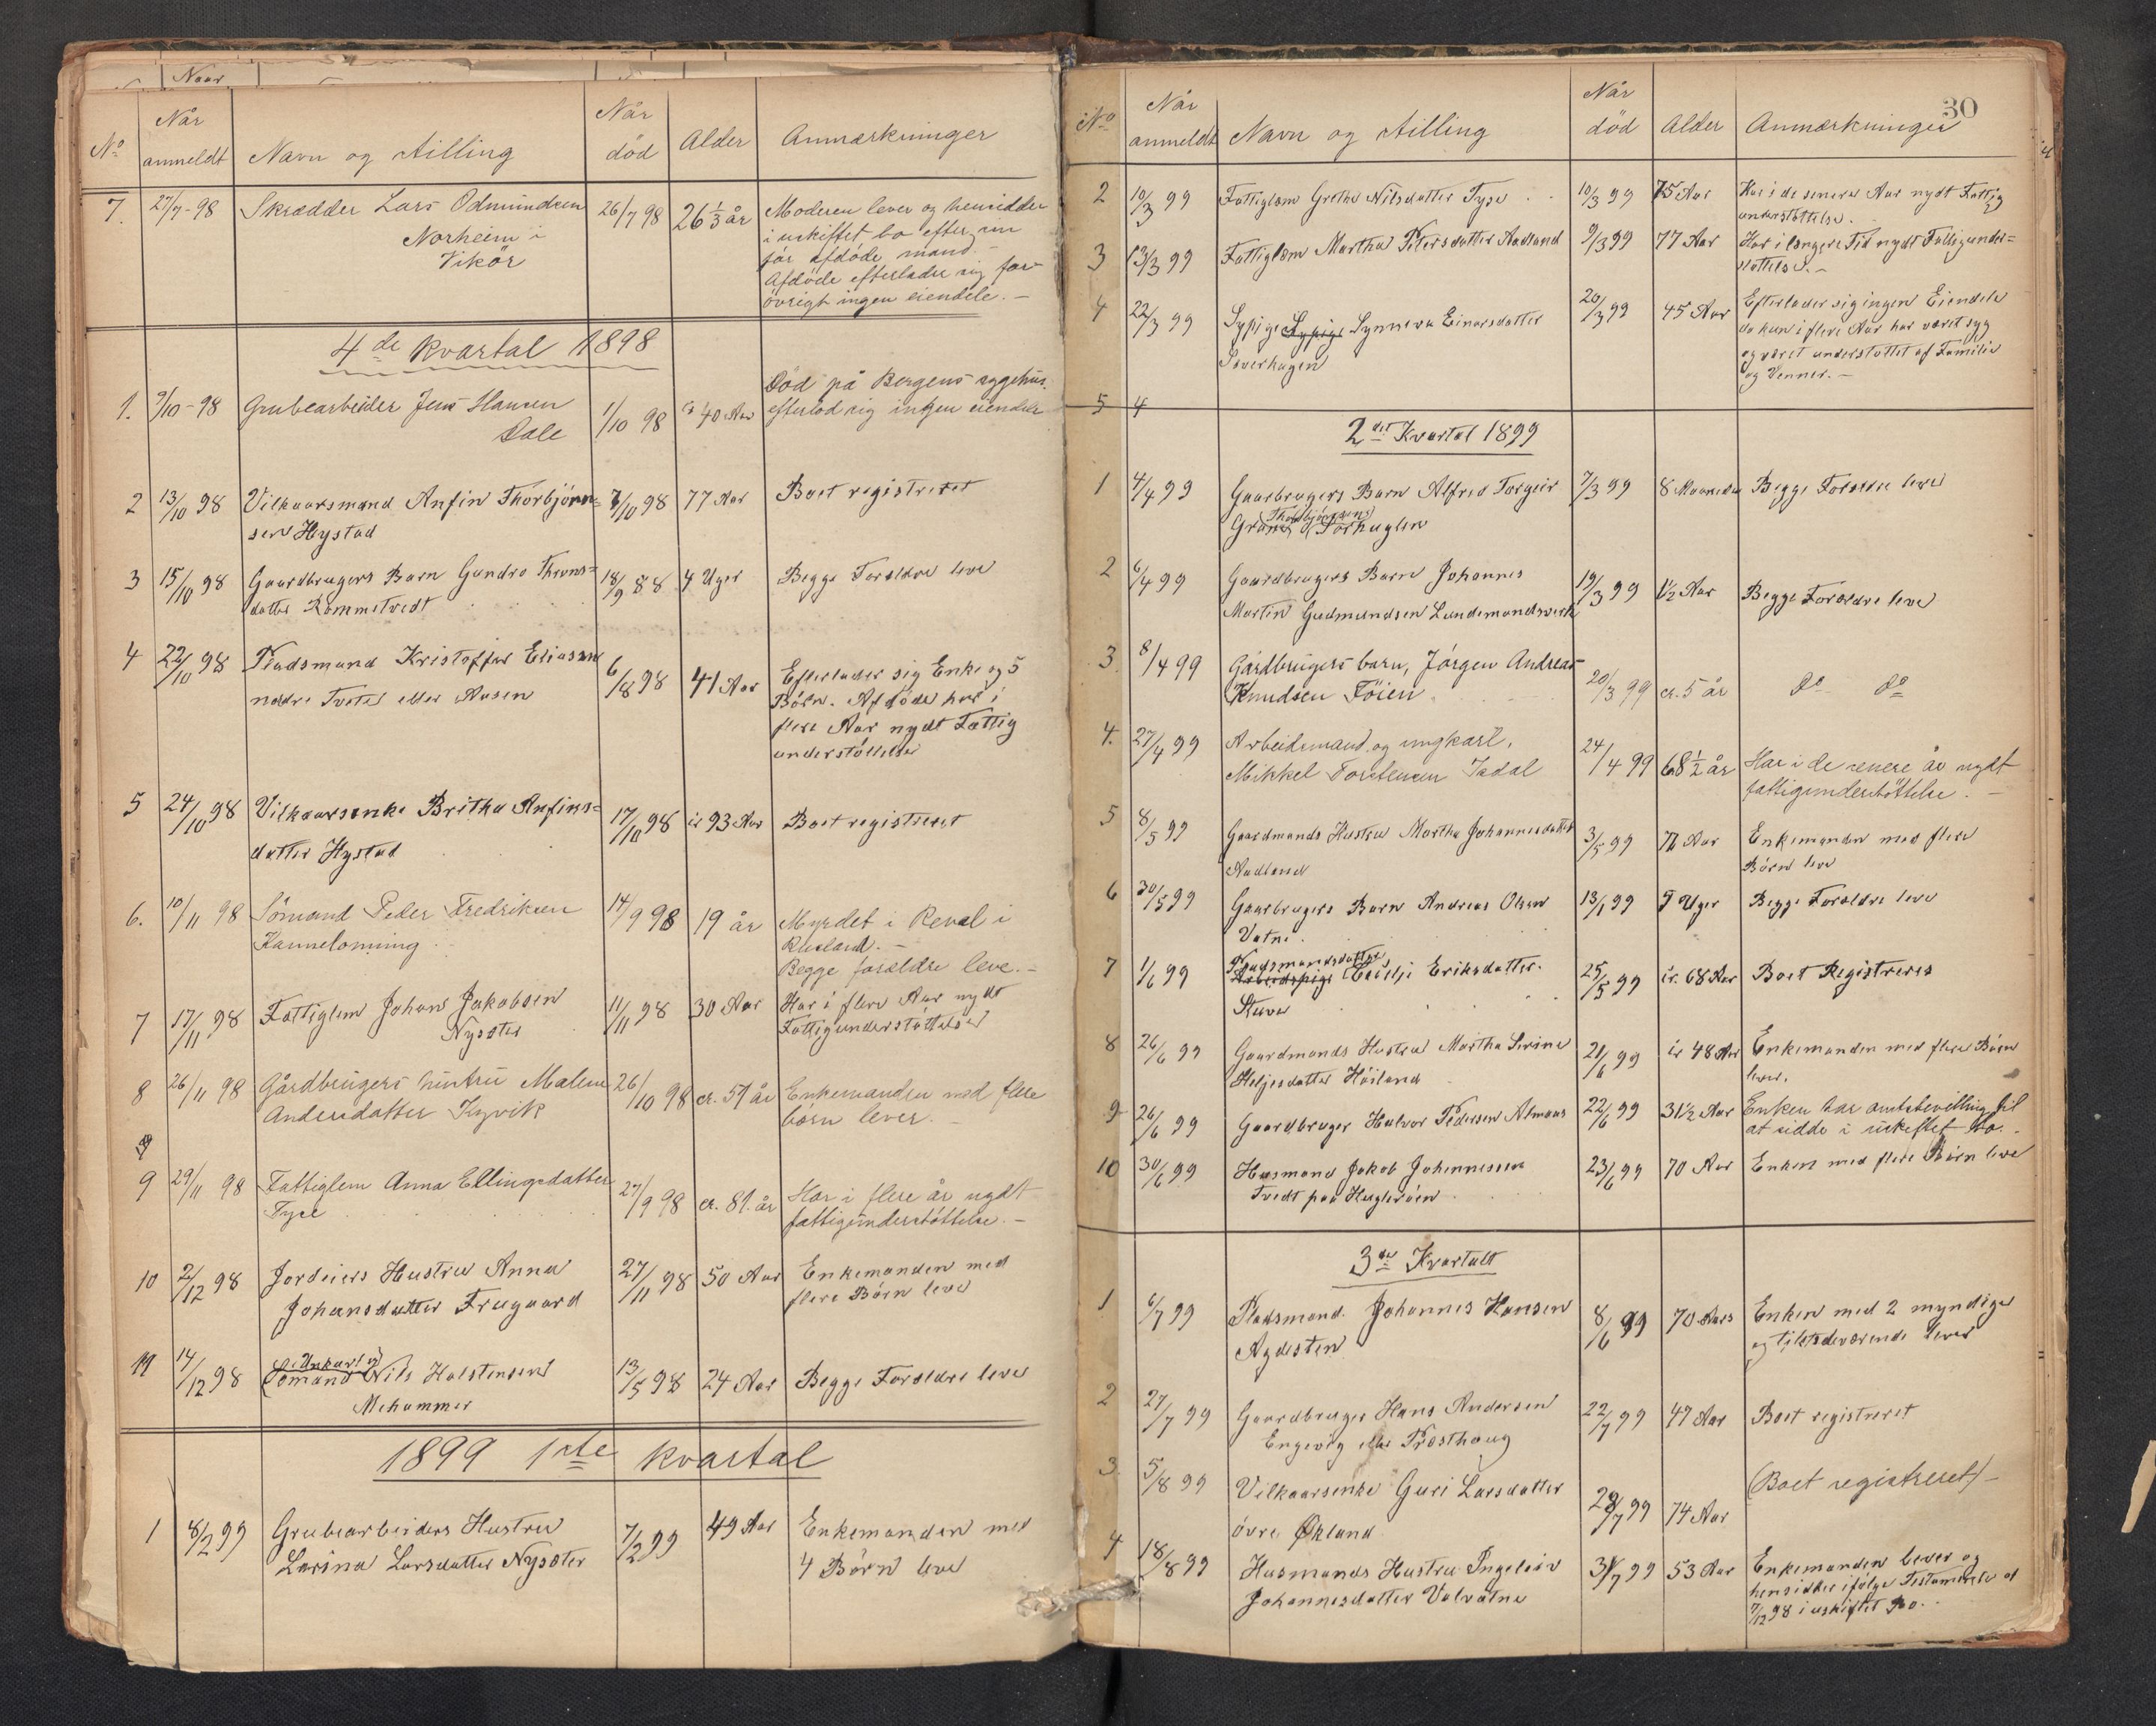 Naar
No
Når
anmeldt
Navn og stilling
Når
død
Alder
Anmærkninger
7. 27/7-98 Skrædder Lars Odmundsen 26/7 98 26 1/3 år Moderen lever og hensidder
Norheim i
Vikör
i uskiftet bo efter sin
før afdøde mand.
Afdøde efterlader sig for-
övrigt ingen eiendele. –
4de kvartal 1898
1. 9/10-98 Grubearbeider Jens Hansen 1/10 98 40 Aar Död på Bergens sygehus.
Dale
efterlod sig ingen eiendele
2 13/10 98 Vilkaarsmand Anfin Thorbjörn= 7/10 98 77 Aar Boet registreret
sen Hystad
3 15/10 98 Gaardbrugers Barn Gundro Throns= 18/9 88 4 Uger Begge Forældre leve
datter Rommetvedt
4 22/10 98 Pladsmand Kristoffer Eliassen 6/8 98 41 Aar Efterlader sig Enke og 5
nedre Tvete eller Aasen
Börn. Afdöde har i
flere Aar nydt Fattig
understöttelse
5 24/10 98 Vilkaarsenke Britha Anfins= 17/10 98 ir 93 Aar Boet registreret
datter Hystad
6. 10/11 98 Sömand Peder Fredriksen 14/9 98 19 år Myrdet i Reval i
Kannelönning
Rusland. –
Begge forældre leve. –
7 17/11 98 Fattiglem Johan Jakobsen 11/11 98 30 Aar Har i flere Aar nydt
Nysæter
Fattigunderstöttelse
8 26/11 98 Gårdbrugers hustru Malene 26/10 98 cr. 59 år Enkemanden med flere
Andersdatter Ingvik
börn lever. –
9
9 29/11 98 Fattiglem Anna Ellingsdatter 27/9 98 cr. 81. år Har i flere år nydt
Tyse
fattigunderstöttelse. –
10 2/12 98 Jordeiers Hustru Anna 27/11 98 50 Aar Enkemanden med
Johansdatter Frugaard
flere Börn leve
11 14/12 98 (Ungkarl og) Sömand Nils Halstensen 13/5 98 24 Aar Begge Forældre lever
Mehammer
1899 1ste kvartal
1 8/2 99 Grubearbeiders Hustru 7/2 99 49 Aar Enkemanden med
Larina Larsdatter Nysæter
4 Börn leve
30
No
Når
anmeldt
Navn og stilling
Når
død
Alder
Anmærkninger
2 10/3 99 Fattiglem Grethe Nilsdatter Tyse 10/3 99 75 Aar Har i de senere Aar nydt Fattig
understöttelse.
3 13/3 99 Fattiglem Martha Petersdatter Aadland 9/3 99 77 Aar Har i længere Tid nydt Fattigunder=
stöttelse. –
4 22/3 99 Sypige Sypige Synneva Einarsdatter 20/3 99 45 Aar Efterlader sig ingen Eiendele
Saverhagen
da hun i flere Aar har været syg
og været understöttet af Familie
og Venner. –
5 4
2det Kvartal 1899
1 4/4 99 Gaarbrugers Barn Alfred Torgeir 7/3 99 8 Maaneder Begge Forældre leve
Thorbjörnsen
Huglen
2 6/4 99 Gaardbrugers Barn Johannes 19/3 99 1 1/2 Aar Begge Forældre leve
Martin Gudmundsen Landemandsverk
3. 8/4 99 Gårdbrugers barn, Jörgen Andreas 20/3 99 cr. 5 år do do
Knudsen Töien
4. 27/4 99 Arbeidsmand og ungkarl, 24/4 99 68 1/2 år Har i de senere år nydt
Mikkel Torstensen Isdal
fattigunderstöttelse. –
5 8/5 99 Gaardmands Hustru Martha Johannesdatter 3/5 99 72 Aar Enkemanden med flere
Aadland
Börn leve
6 30/5 99 Gaarbrugers Barn Andreas Olsen 13/1 99 9 Uger Begge Forældre leve
Vatne
7 1/6 99 Pladsmandsdatter
Arbeidspige Cecilje Eriksdatter 25/5 99 ir. 68 Aar Boet Registreres
Stuve
8 26/6 99 Gaardmands Hustru Martha Serine 21/6 99 ir 48 Aar Enkemanden med flere Börn
Heljesdatter Höiland
lever.
9 26/6 99 Gaardbruger Halvor Pedersen Almaas 22/6 99 31 1/2 Aar Enken har amtsbevilling til
at sidde i uskiftet bo.
10 30/6 99 Husmand Jakob Johannessen 23/6 99 70 Aar Enken med flere Börn leve
Tvedt paa Huglenöen
3de Kvartalt
1 6/7 99 Pladsmand. Johannes Hansen 8/6 99 70 Aars Enken med 2 myndige
Agdesten
og tilstedeværende lever
2 27/7 99 Gaardbruger Hans Andersen 22/7 99 47 Aar Boet registreret
Engevig eller Præsthaug
3. 5/8 99 Vilkaarsenke Guri Larsdatter 29/7 99 74 Aar (Boet registreret) –
övre Økland
4 18/8 99 Husmands Hustru Ingeleiv 31/7 99 53 Aar Enkemanden lever og
Johannesdatter Valvatne
hensidder ifølge Testamente af
7/12 98 i uskiftet Bo.